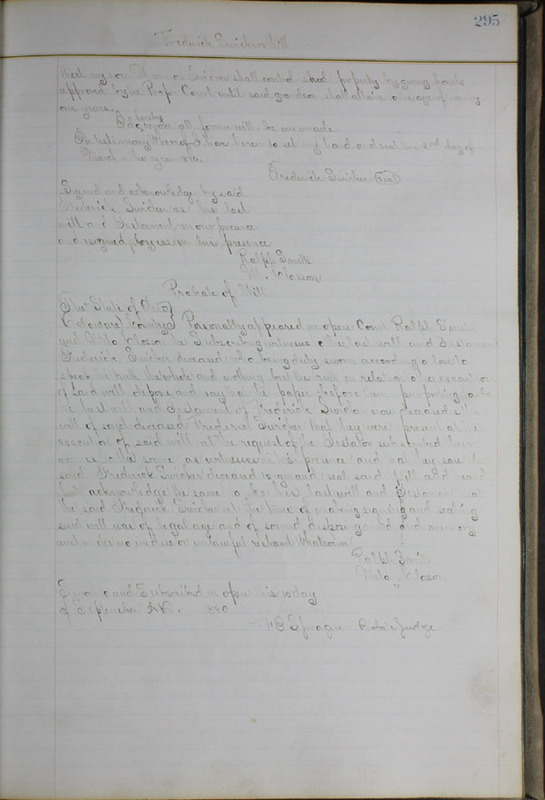 295
Frederick Swickers Will
that my son shall control said property by giving bonds
approved by the Court until said grandson shall attain to the age of twenty
one years.
I hereby
revoke all former wills by me made
In testimony Whereof I have hereunto set my hand and seal this 2nd day of
March in the year
Frederick Seal
Signed and acknowledged by said
Frederick as his last
will and Testament in our presence
and signed by us in his presence
Ralph Smith
M. Closson
Probate of Will
The State of Ohio
Delaware County Personally appeared in open Court Ralph Smith
and Milo Closson the Subscribing witnesses to the last will and Testament
Frederick deceased who being duly sworn according to law to
speak the truth the whole and nothing but the truth in relation to the execution
of said will depose and say that the paper before them purporting to be
the last will and Testament of Frederick now deceased is the
will of said deceased Frederick that they were present at the
execution of said will at the request of the Testator subscribed their
names to the same as witnesses in his presence and that they saw the
said Frederick deceased sign and seal said Will and
acknowledge the same to be his last will and Testament that
the said Frederick at the time of making signing and sealing
said will was of legal age and of sound disposing mind and memory
and under no undue or unlawful restraint Whatsoever
Ralph Smith
Milo Closson
Sworn and Subscribed in open this 10 day
of September A.D.
Sprague Judge